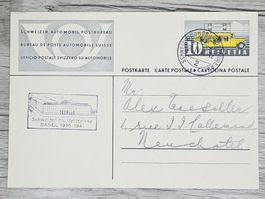 SCHWEIZER. AUTOMOBIL-POSTBUREAU
BUREAU DE POSTE AUTOMOBILE SUISSE
UFFICIO POSTALE SVIZZERO SU AUTOMOBILE
10
HELVETIA
POSTKARTE CARTE POSTALE CARTOLINA POSTALE
Schweizer Mustermesse
BASEL 1916-1941
Mr.
Alex
1, rue J. J. Lallemand
Neuchatel